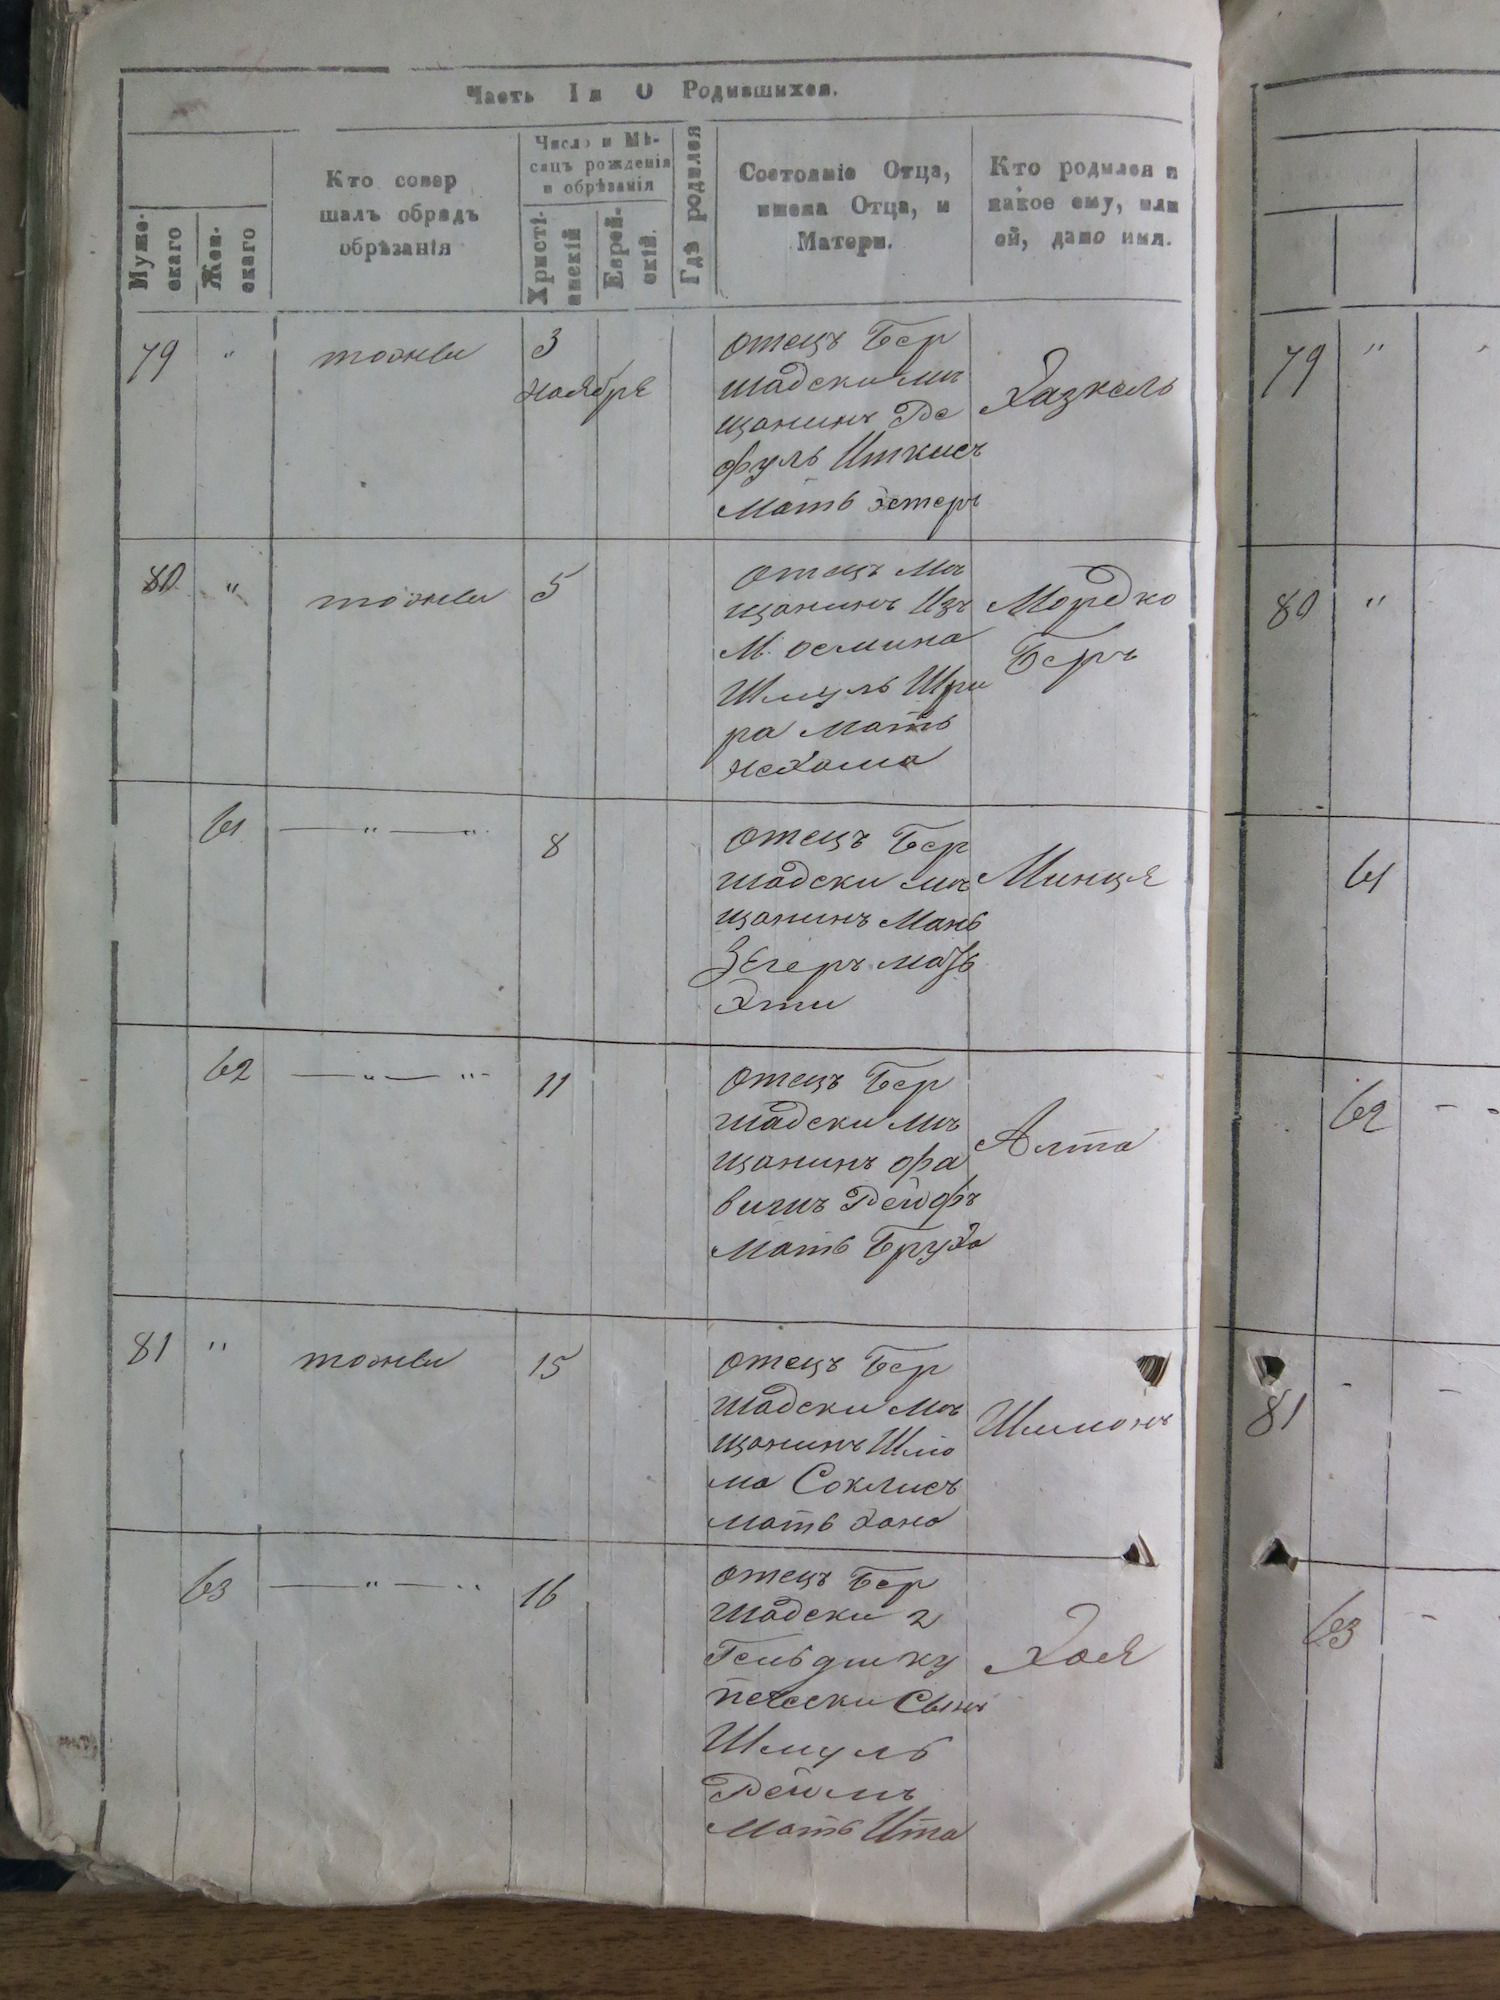 Часть Iя О Родившихся.
Муже-
скаго
Жен-
скаго
Кто совер
шалъ обрядъ
обрѣзанія
Число и Мѣ-
сяцъ рожденія
и обрѣзанія
Христі-
анскій
Еврей-
скій.
Гдѣ родился
Состояніе Отца,
имена Отца, и
Матери.
Кто родился и
какое ему, или
ей, дано имя.
79 " тожъи 3
ноября
отецъ Бер
шадски мѣ
щанинъ Ре
фуль Иткисъ
мать Эстеръ
Хазкель
80 " тожъи 5
отецъ мѣ
щанинъ Изъ
М.
Шмуль
ра мать
Нехома
Мордко
Беръ
61 — " — " 8
отецъ Бер
шадски мѣ
щанинъ Мань
Зегеръ мать
Эти
Минця
62 — " — " 11
отецъ Бер
шадски мѣ
щанинъ
мать Бруха
Алта
81 " тожъи 15
отецъ Бер
шадски мѣ
щанинъ Шлю
ма Соклисъ
мать Хана
Шимонъ
63 — " — " 16
отецъ Бер
шадски 2
Гельдии ку
печески Сынъ
Шмуль
мать Ита
Хая
79 "
80 "
61
62
81
63